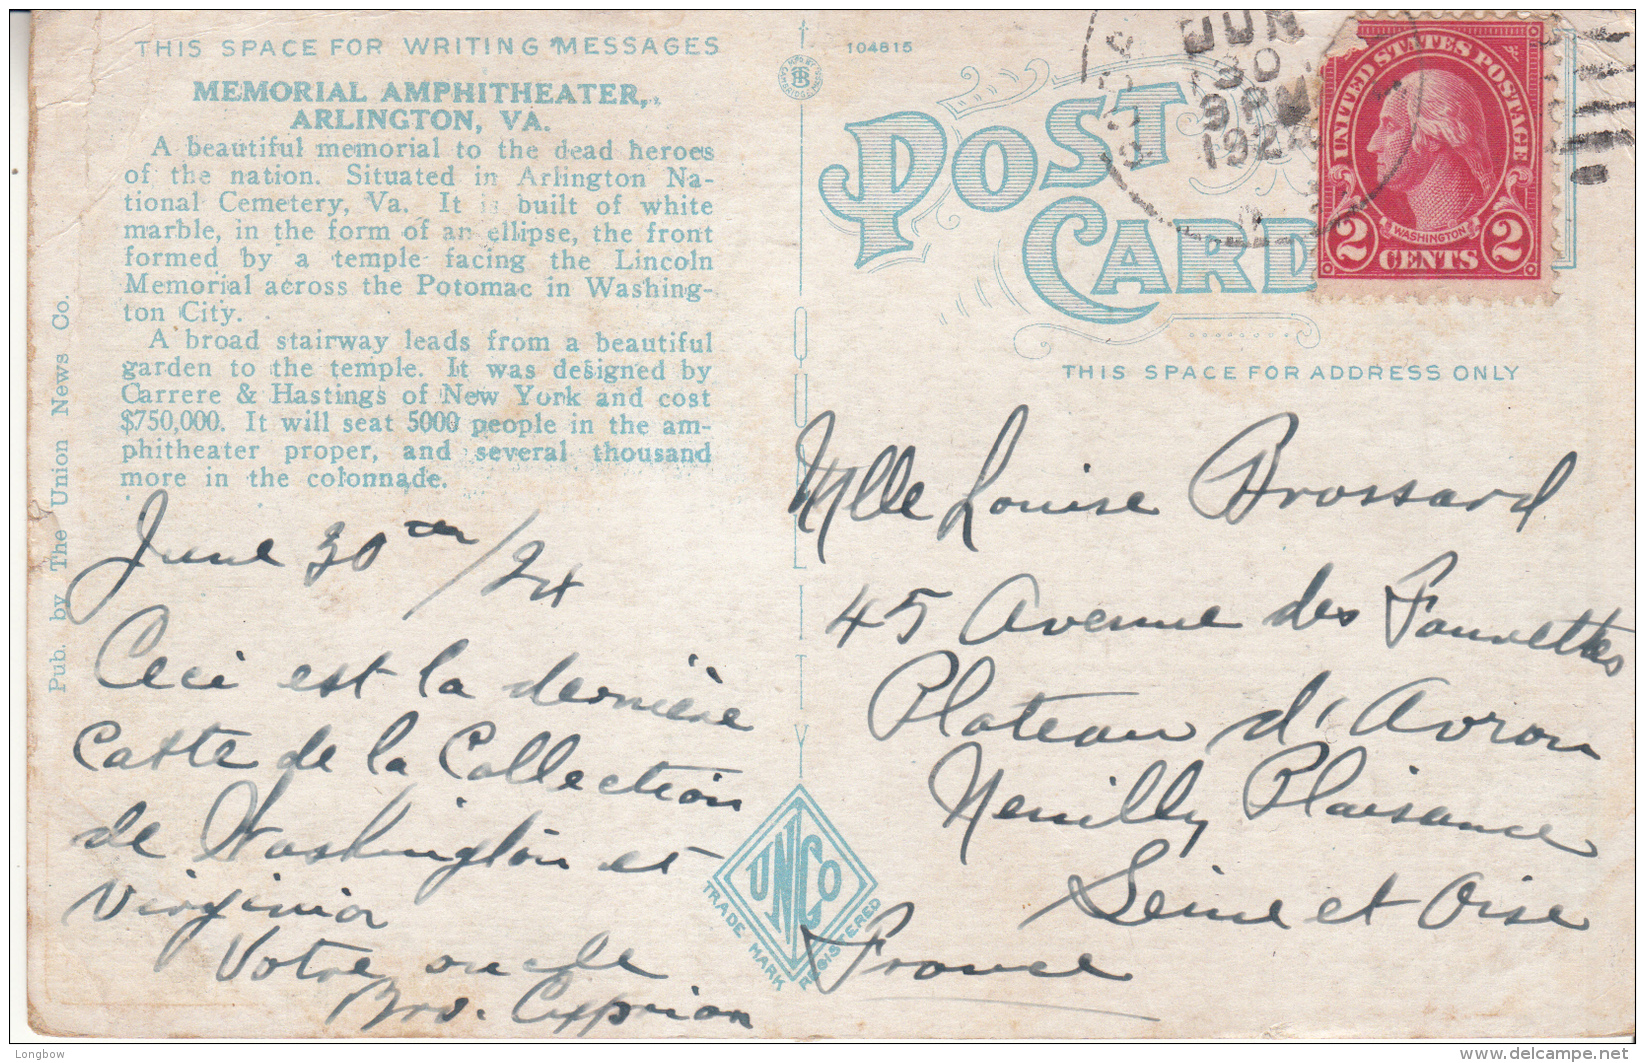 THIS SPACE FOR WRITING MESSAGES
MEMORIAL AMPHITHEATER,
ARLINGTON, VA.
A beautiful memorial to the dead heroes
of the nation. Situated in Arlington Na-
tional Cemetery, Va. It is built of white
marble, in the form of an ellipse, the front
formed by a temple facing the Lincoln
Memorial across the Potomac in Washing-
ton City.
A broad stairway leads from a beautiful
garden to the temple. It was designed by
Carrere & Hastings of New York and cost
$750,000. It will seat 5000 people in the am-
phitheater proper, and several thousand
more in the colonnade.
Pub. by The Union News Co.
June 30 /24
Ceci est la dernière
Carte de la Collection
de Washington et
Virginia
Votre oncle
Bro. Cyprian
104615
POST
CARD
JUN
30
9 PM
1924
UNITED STATES POSTAGE
WASHINGTON
2 CENTS 2
THIS SPACE FOR ADDRESS ONLY
QUALITY
UNCO
TRADE MARK REGISTERED
Mlle Louise Brossard
45 Avenue des Fauvettes
Plateau d'Avron
Neuilly Plaisance
Seine et Oise
France
Longbow
www.delcampe.net